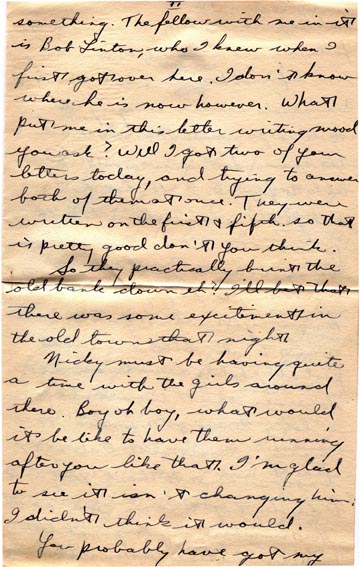 II
something. The fellow with me in it
is Bob Linton, who I knew when I
first got over here. I don't know
where he is now however. What
put me in this letter writing mood
you ask? Well I got two of your
letters today, and trying to answer
both of them at once. They were
written on the first & fifth. so that
is pretty good don't you think.
So they practically burnt the
old bank down eh? I'll bet that
there was some excitement in
the old town that night
Nicky must be having quite
a time with the girls around
there. Boy oh boy, what would
it be like to have them running
after you like that. I'm glad
to see it isn't changing him.
I didn't think it would.
You probably have got my